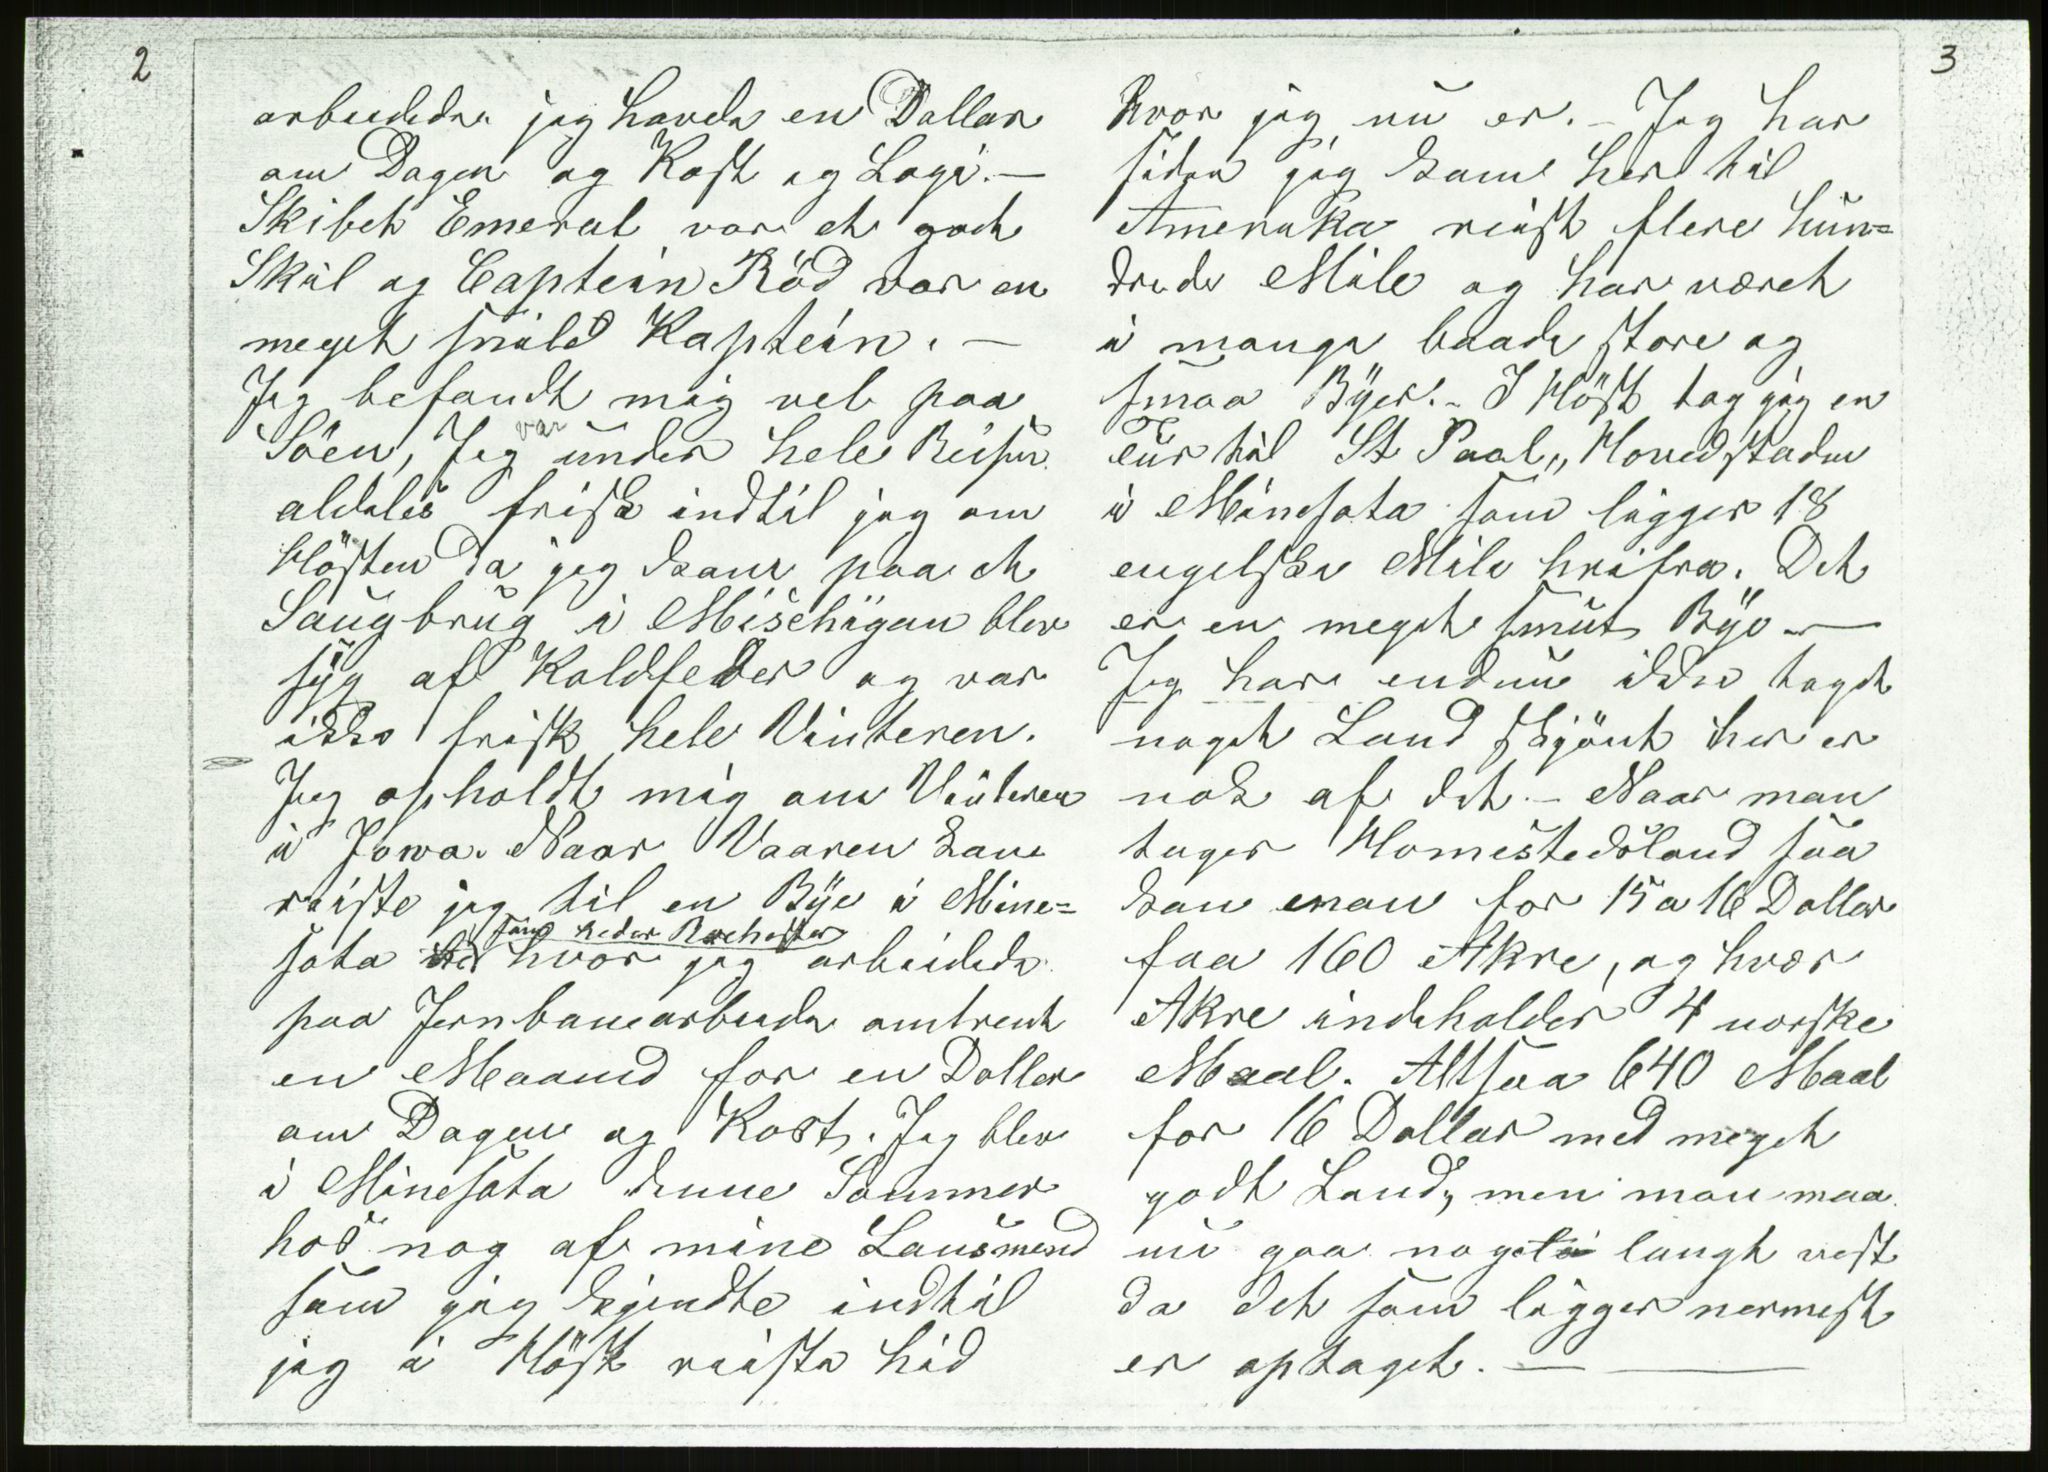 2
arbeidede. jeg havde en Dollar
om Dagen og Kost og Logi. —
Skibet Emeral var et godt
Skib og Captein Röd var en
meget snild Kaptein. —
Jeg befandt mig vel paa
Söen, Jeg var under hele Reisen
aldeles frisk indtil jeg om
Hösten da jeg kom paa et
Saugbrug i Mischigan blev
syg af Koldfeber og var
ikke frisk hele Vinteren.
Jeg opholdt mig om Vinteren
i Jowa. Naar Vaaren kom
reiste jeg til en Bye i Mine=
som heder Rochester
sota hvor jeg arbeidede
paa Jernbanearbeide omtrent
en Maaned for en Dollar
om Dagen og Kost. Jeg blev
i Minesota denne Sommer
hos nog af mine Lansmend
som jeg kjendte indtil
jeg i Höst reiste hid
3
hvor jeg nu er. – Jeg har
siden jeg kom her til
Amerika reist flere hun=
drede Mile og har været
i mange baade store og
smaa Byer. – I Höst tog jeg en
Tur til St Paal, Hovedstaden
i Minesota som ligger 18
engelske Mile herifra. Det
er en meget smuk Bye —
Jeg har endnu ikke taget
noget Land skjönt her er
nok af det. – Naar man
tager Homestedsland saa
kan man for 15 a 16 Dollar
faa 160 Akre, og hver
Akre indeholder 4 norske
Maal. Altsaa 640 Maal
for 16 Dollar med meget
godt Land, men man maa
nu gaa noget langt vest
da det som ligger nermest
er optaget. —